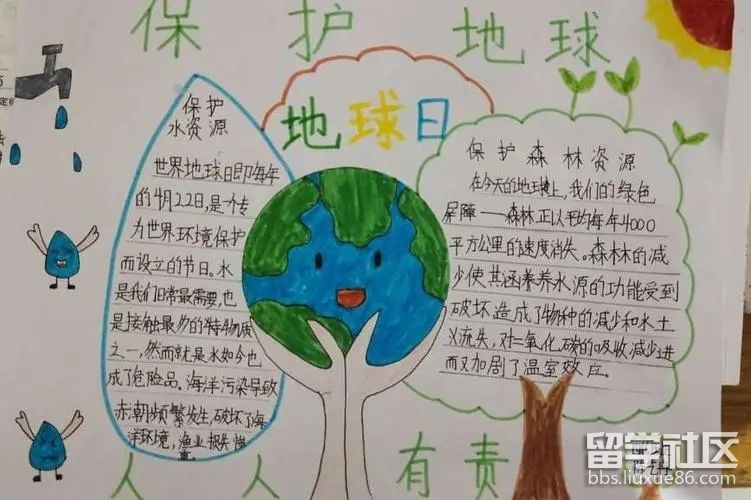 保护地球
地球日
保护
水资源
世界地球日即每年
的4月22日,是个专
为世界环境保护
而设立的节日。水
是我们日常最需要,也
是接触最多的物质
之一,然而就是水如今也
成了危险品。海洋污染导致
赤潮频繁发生,破坏了海
洋环境,渔业损失惨
重
保护森林资源
在今天的地球上,我们的绿色
屏障——森林正以平均每年4000
平方公里的速度消失。森林的减
少使其涵养水源的功能受到
破坏造成了物种的减少和水土
流失,对二氧化碳的吸收减少进
而又加剧了温室效应。
人人有责
留学社区
bbs.liuxue86.com